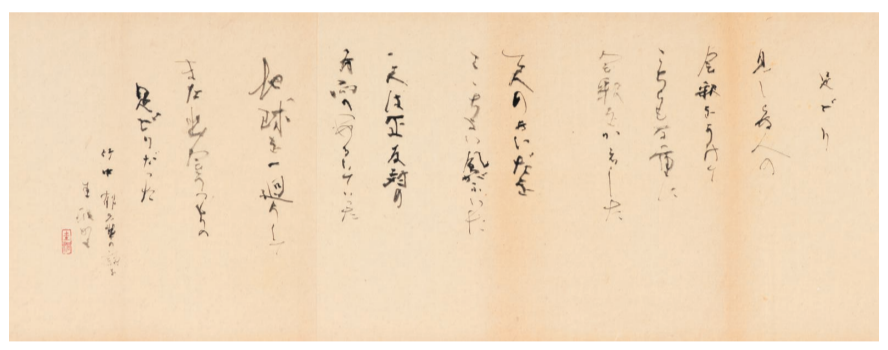 足どり
見しらぬ人の
会釈をうけて
こちらも丁重に
会釈をかえした
二人のあいだを
ここちよい風がふいた
二人は正反対の
方向へあるいていった
地球を一廻りして
また出会うつもりの
足どりだった
竹中郁の詩を